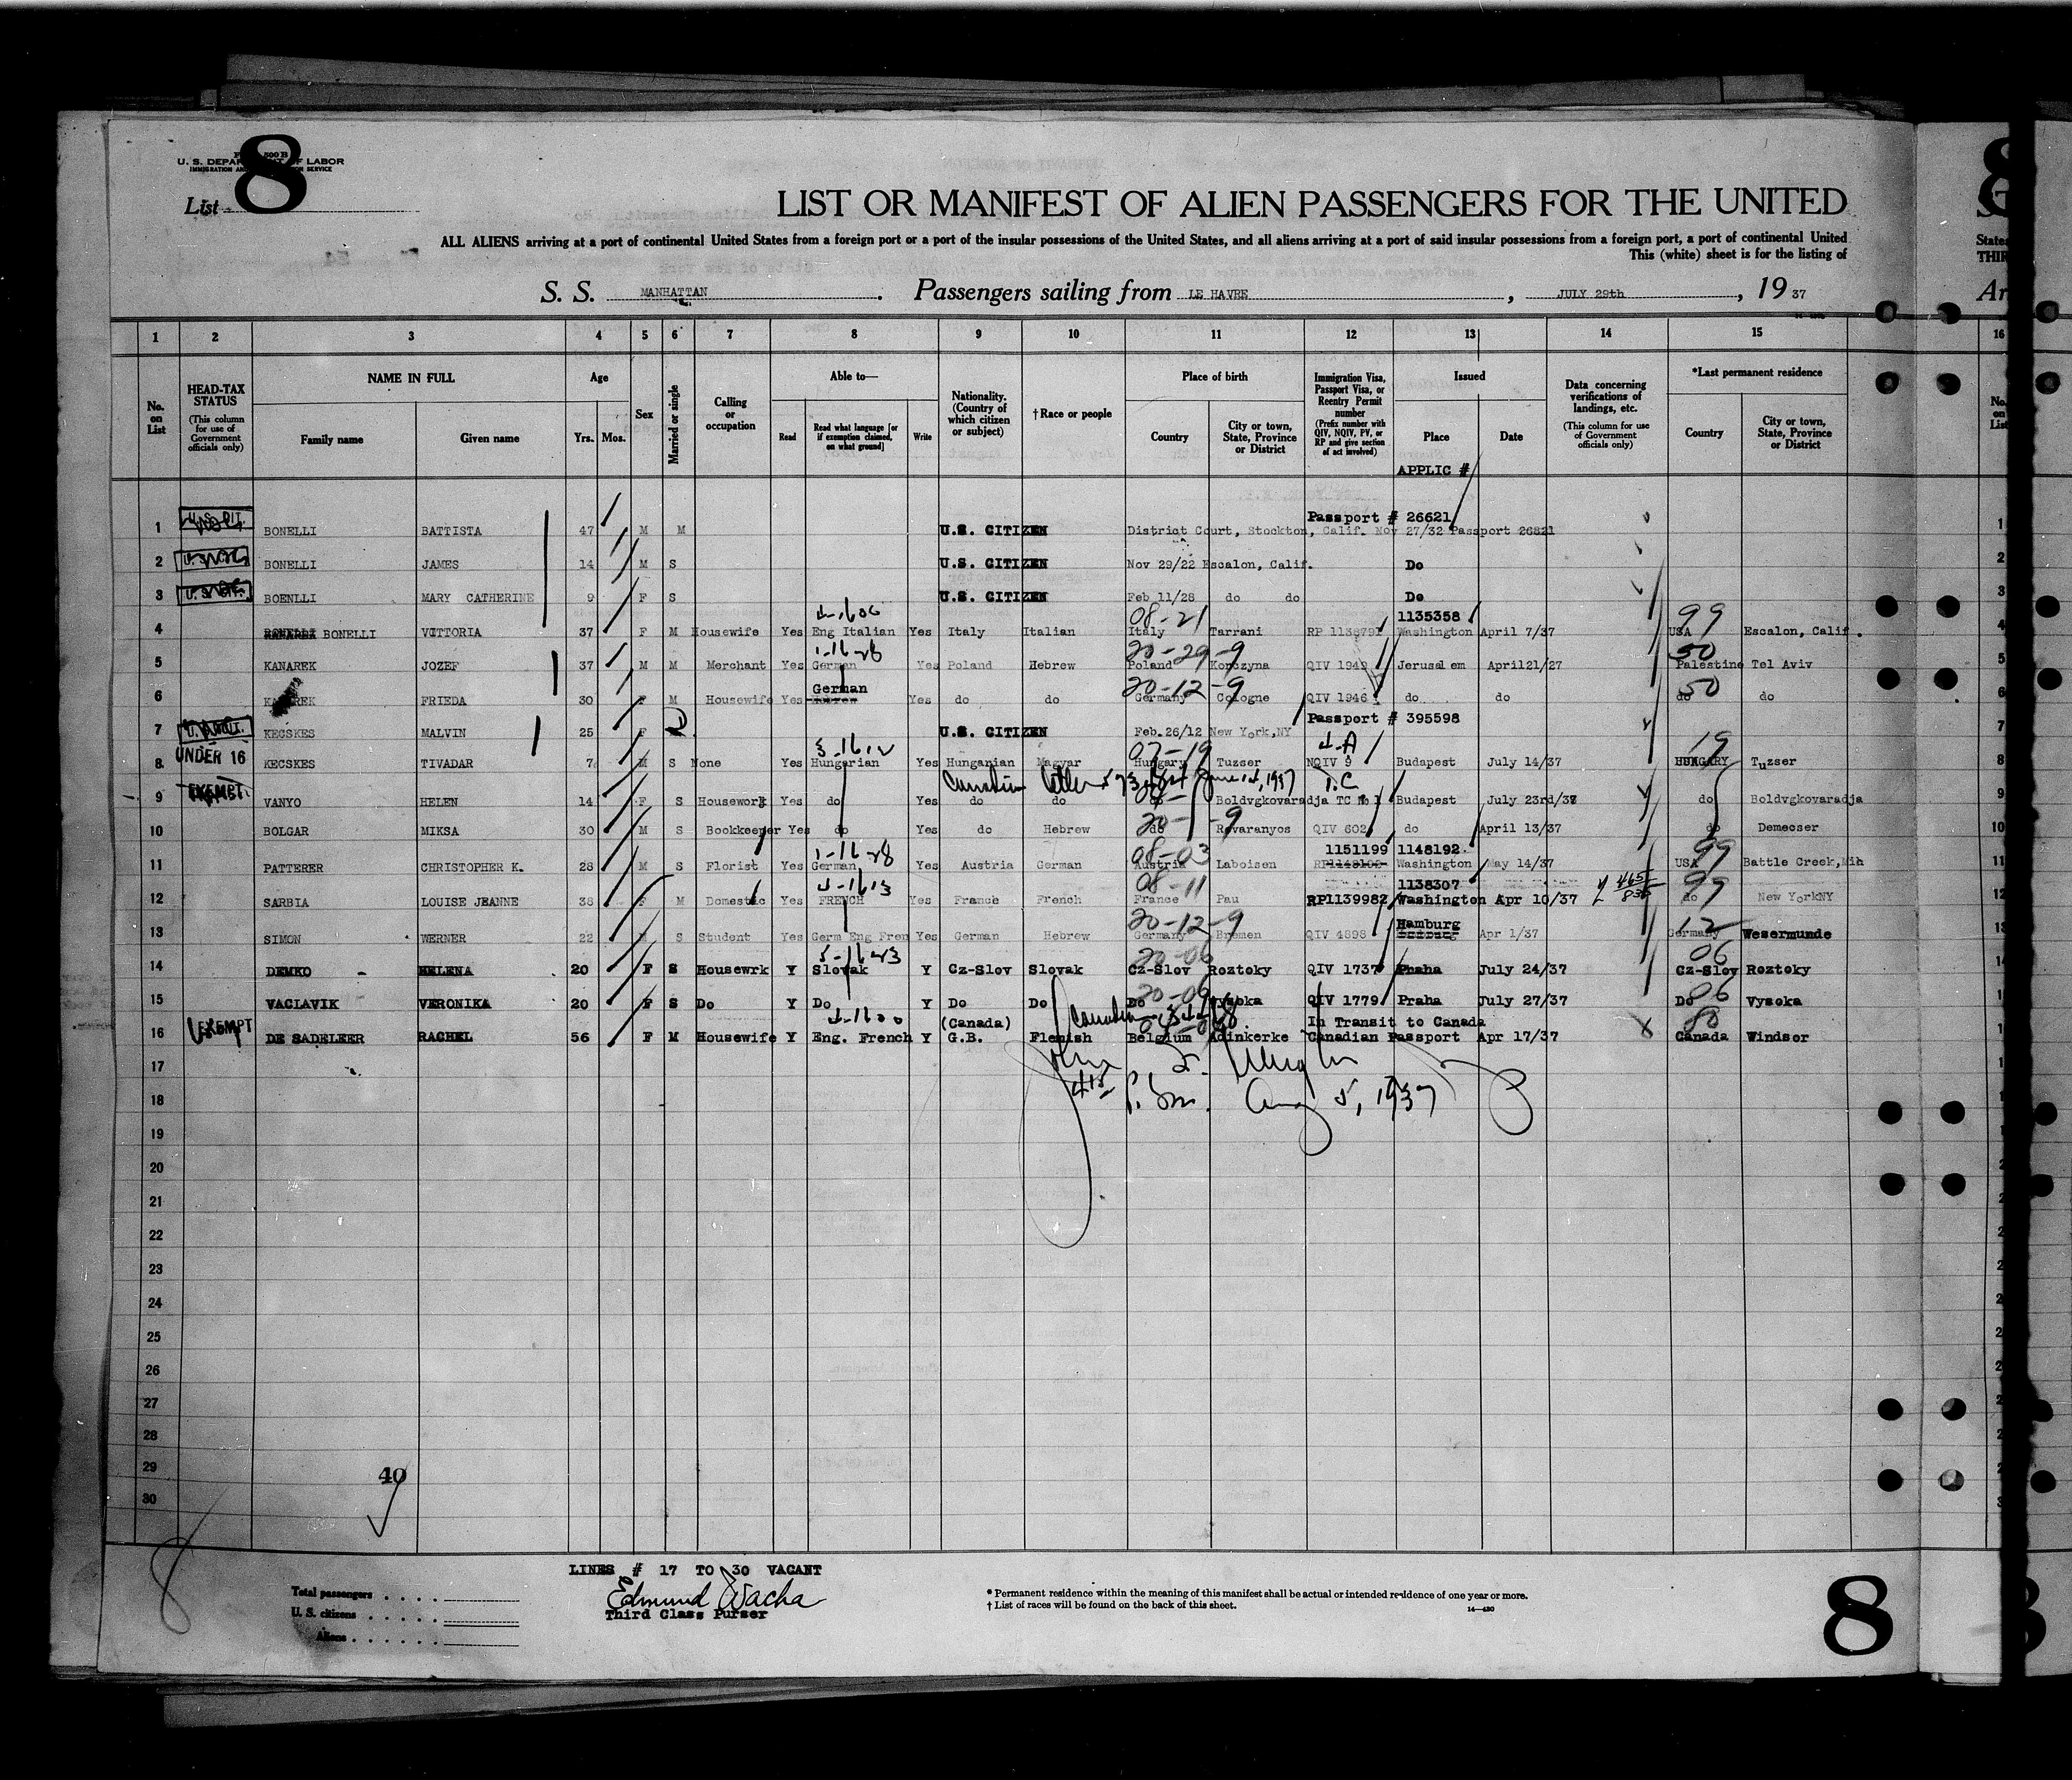 8
U. S. DEPARTMENT OF LABOR
IMMIGRATION AND SERVICE
List
LIST OR MANIFEST OF ALIEN PASSENGERS FOR THE UNITED
ALL ALIENS arriving at a port of continental United States from a foreign port or a port of the insular possessions of the United States, and all aliens arriving at a port of said insular possessions from a foreign port, a port of continental United
This (white) sheet is for the listing of
S. S. MANHATTAN. Passengers sailing from LE HAVRE, JULY 29th, 19 37
1 2 3 4 5 6 7 8 9 10 11 12 13 14 15 16
No. on List
HEAD-TAX STATUS (This column for use of Government officials only)
NAME IN FULL Family name Given name
Age Yrs. Mos.
Sex
Married or single
Calling or occupation
Able to— Read Read what language [or if exemption claimed, on what ground] Write
Nationality. (Country of which citizen or subject)
†Race or people
Place of birth Country City or town, State, Province or District
Immigration Visa, Passport Visa, or Reentry Permit number (Prefix number with QIV, NQIV, PV, or RP and give section of act involved)
Issued Place Date
APPLIC #
Data concerning verifications of landings, etc. (This column for use of Government officials only)
*Last permanent residence Country City or town, State, Province or District
Passport # 26621
1 BONELLI BATTISTA 47 M M U.S. CITIZEN District Court, Stockton, Calif. Nov 27/32 Passport 26621
2 BONELLI JAMES 14 M S U.S. CITIZEN Nov 29/22 Escalon, Calif. Do
3 BOENLLI MARY CATHERINE 9 F S U.S. CITIZEN Feb 11/28 do do Do
08-21 1135358 99
4 BONELLI VCTTORIA 37 F M Housewife Yes Eng Italian Yes Italy Italian Italy Tarrani RP Washington April 7/37 USA Escalon, Calif.
20-29-9 50
5 KANAREK JOZEF 37 M M Merchant Yes German Yes Poland Hebrew Poland Korczyna QIV 1949 Jerusalem April21/27 Palestine Tel Aviv
German 20-12-9 50
6 KANAREK FRIEDA 30 F M Housewife Yes Hebrew Yes do do Germany Cologne QIV 1946 do do do do
Passport # 395598
7 KECSKES MALVIN 25 F U.S. CITIZEN Feb.26/12 New York,NY
UNDER 16 07-19 19
8 KECSKES TIVADAR 7 M S None Yes Hungarian Yes Hunganian Magyar Hungary Tuzser NQIV 9 Budapest July 14/37 HUNGARY Tuzser
EXEMPT June 14, 1937 T.C
9 VANYO HELEN 14 F S Housework Yes do Yes do do do Boldvgkovaradja TC № 1 Budapest July 23rd/37 do Boldvgkovaradja
20- -9
10 BOLGAR MIKSA 30 M S Bookkeeper Yes do Yes do Hebrew do Rovaranyos QIV 602 do April 13/37 do Demecser
08-03 1151199 1148192 99
11 PATTERER CHRISTOPHER K. 28 M S Florist Yes German Yes Austria German Austria Laboisen Washington May 14/37 USA Battle Creek,Mih
08-11 1138307 99
12 SARBIA LOUISE JEANNE 38 F M Domestic Yes FRENCH Yes France French France Pau RP1139982 Washington Apr 10/37 do New YorkNY
20-12-9 Hamburg 12
13 SIMON WERNER 22 M S Student Yes Germ Eng Fren Yes German Hebrew Germany Bremen QIV 4898 Apr 1/37 Germany Wesermunde
20-06 06
14 DEMKO HELENA 20 F S Housewrk Y Slovak Y Cz-Slov Slovak Cz-Slov Roztoky QIV 1737 Praha July 24/37 Cz-Slov Roztoky
20-06 06
15 VACLAVIK VERONIKA 20 F S Do Y Do Y Do Do Do Vysoka QIV 1779 Praha July 27/37 Do Vysoka
EXEMPT (Canada) In Transit to Canada 80
16 DE SADELEER RACHEL 56 F M Housewife Y Eng. French Y G.B. Flemish Belgium Adinkerke Canadian Passport Apr 17/37 Canada Windsor
17
Aug 5, 1937
18
19
20
21
22
23
24
25
26
27
28
29
40
30
LINES # 17 TO 30 VACANT
Edmund Wacha
Third Class Purser
Total passengers
U. S. citizens
Aliens
* Permanent residence within the meaning of this manifest shall be actual or intended residence of one year or more.
† List of races will be found on the back of this sheet.
14—430
8